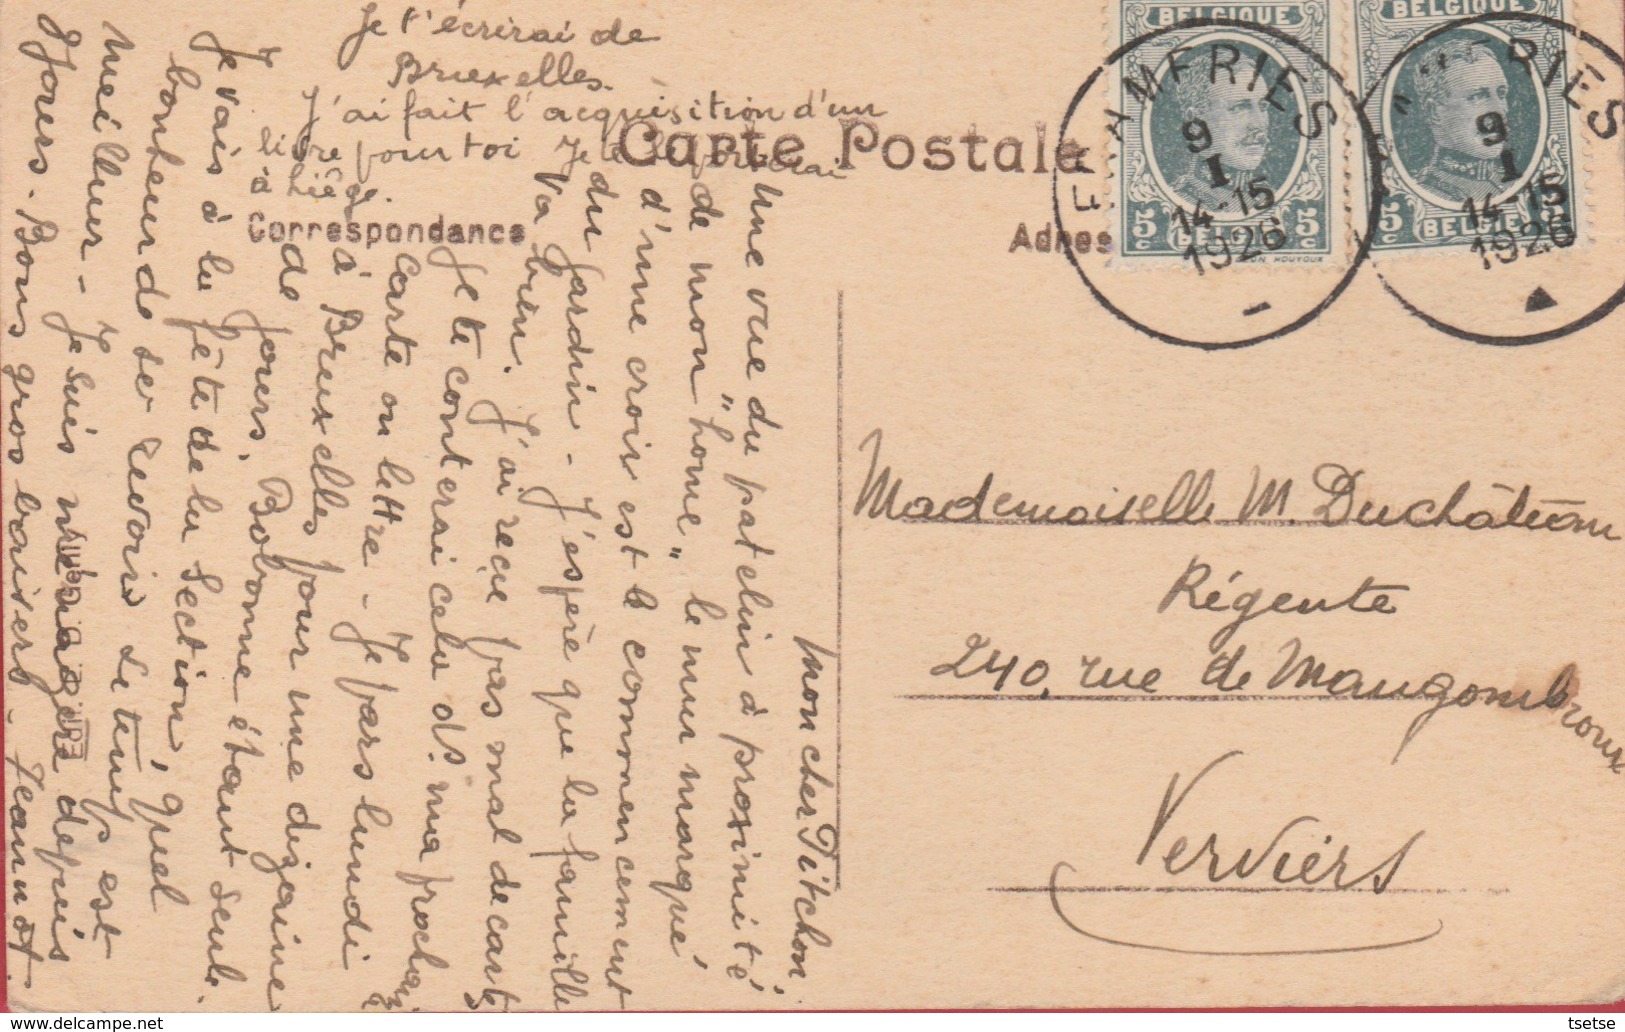 Je t'écrirai de
Bruxelles.
J'ai fait l'acquisition d'un
livre pour toi Je te le porterai
à Liège.
Carte Postale
Correspondance
BELGIQUE
5c 5c
BELGIË
BELGIQUE
5c
BELGIË
FRAMERIES
9
I
14-15
1926
9
I
14-15
1926
Mon cher Titchon,
Une vue du patelin à proximité
de mon "home" le mur marqué
d'une croix est le commencement
du jardin - J'espère que la famille
va bien. J'ai reçu pas mal de cartes
Je te conterai cela ds. ma prochaine
carte ou lettre - Je pars lundi
à Bruxelles pour une dizaine
de jours, Bobonne étant seule.
Je vais à la fête de la Section, quel
bonheur de se revoir. Le temps est
meilleur - Je suis ménagère depuis
8 jours. Bons gros baisers - Jeannot.
Mademoiselle M. Duchâteau
Régente
240, rue de Mangombroux
Verviers
tsetse